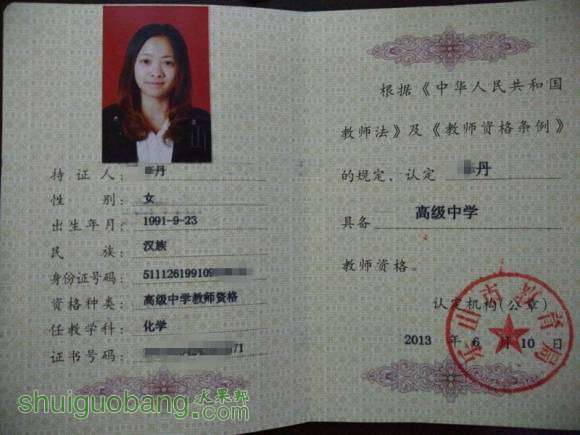 持证人：丹
性别：女
出生年月：1991-9-23
民族：汉族
身份证号码：51112619910
资格种类：高级中学教师资格
任教学科：化学
证书号码：71
水果邦
shuiguobang.com
根据《中华人民共和国
教师法》及《教师资格条例》
的规定，认定 丹
具备 高级中学
教师资格。
认定机构(公章)
2013 年 6 月 10 日
乐山市教育局